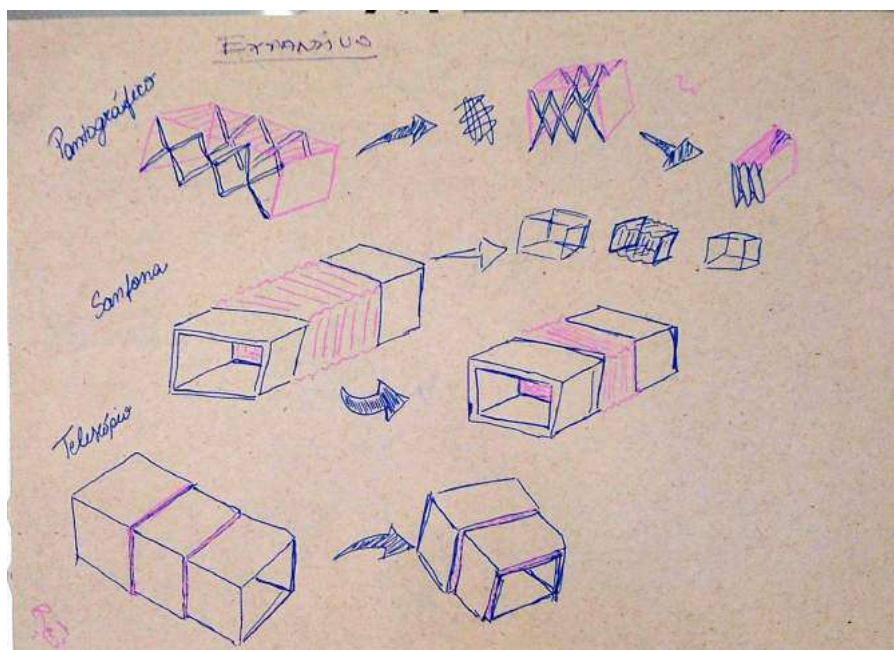 Expansivo
Pantográfico
Sanfona
Telescópio